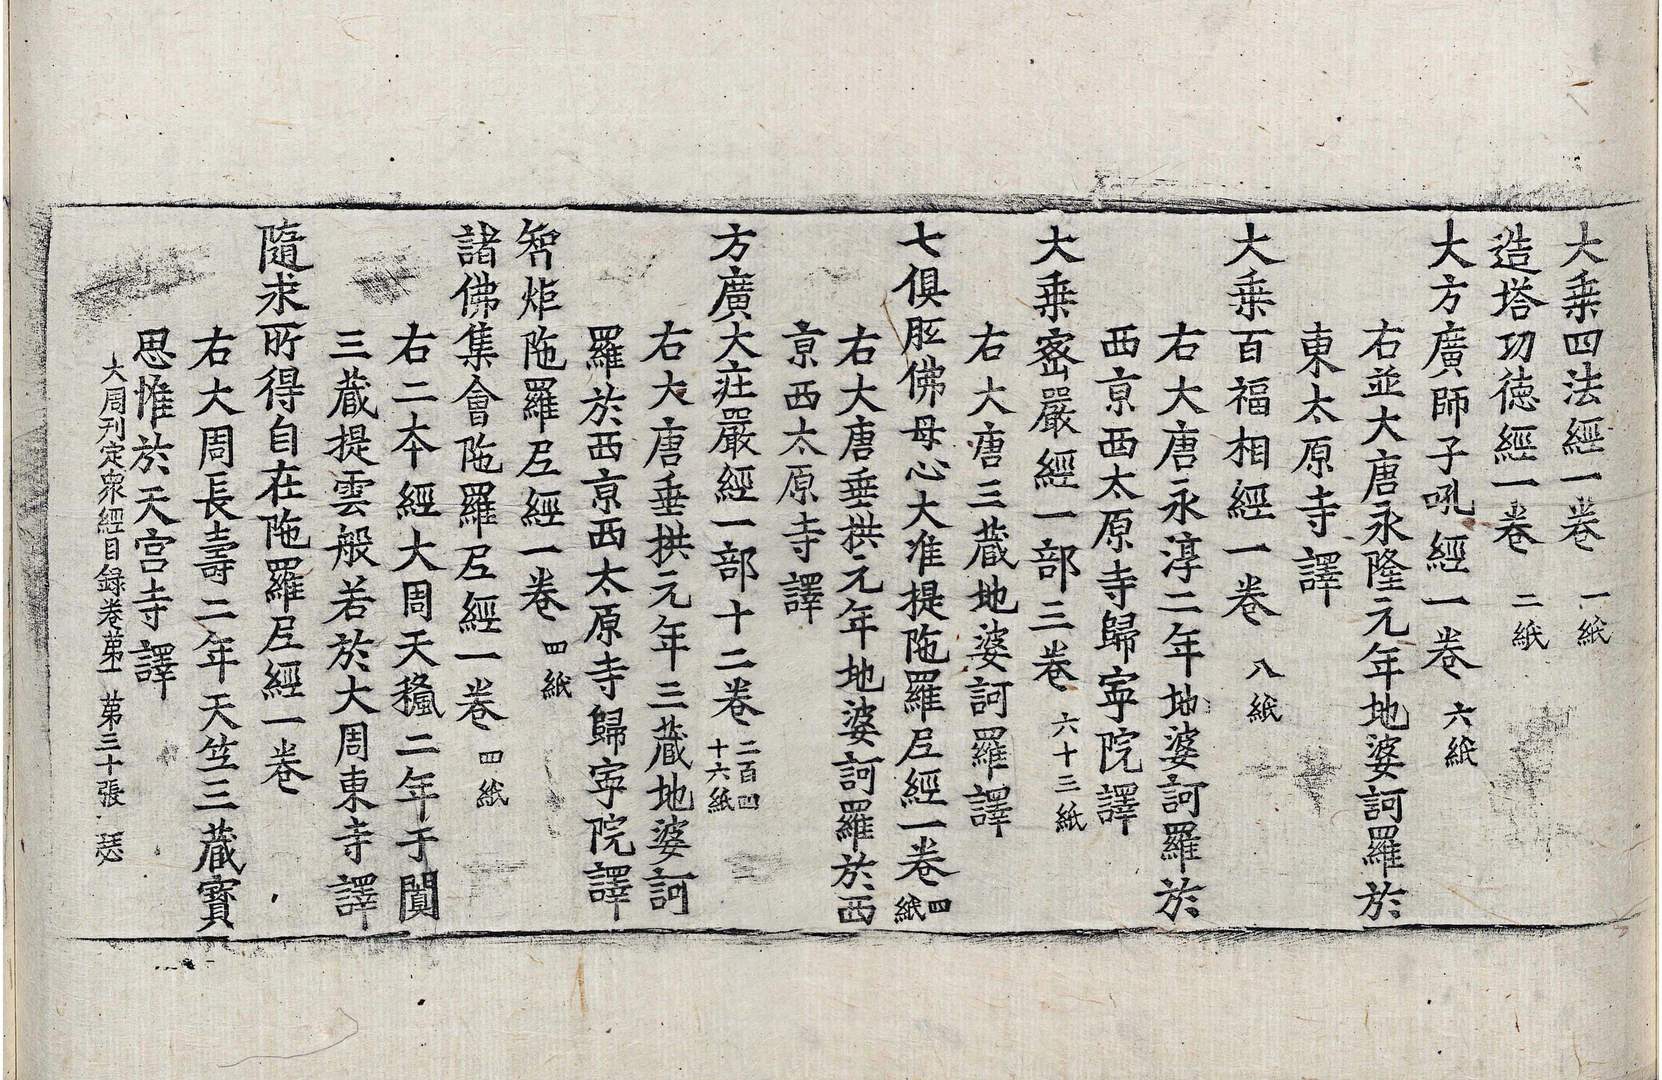 大乗四法經一卷 一紙
造塔功徳經一卷 二紙
大方廣師子吼經一卷 六紙
右並大唐永隆元年地婆訶羅於
東太原寺譯
大乗百福相經一卷 八紙
右大唐永淳二年地婆訶羅於
西亰西太原寺歸寜院譯
大乗密嚴經一部三卷 六十三紙
右大唐三藏地婆訶羅譯
七俱胝佛母心大准提陁羅尼經一卷 四紙
右大唐垂拱元年地婆訶羅於西
亰西太原寺譯
方廣大莊嚴經一部十二卷 二百四十六紙
右大唐垂拱元年三藏地婆訶
羅於西亰西太原寺歸寜院譯
智炬陁羅尼經一卷 四紙
諸佛集會陁羅尼經一卷 四紙
右二本經大周天授二年于闐
三藏提雲般若於大周東寺譯
隨求所得自在陁羅尼經一卷
右大周長壽二年天竺三藏寶
思惟於天宫寺譯
大周刊定衆經目録卷苐一 苐三十張 瑟